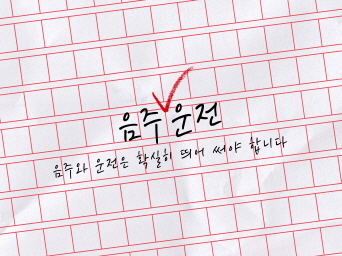 음주 운전
음주와 운전은 확실히 띄어 써야 합니다